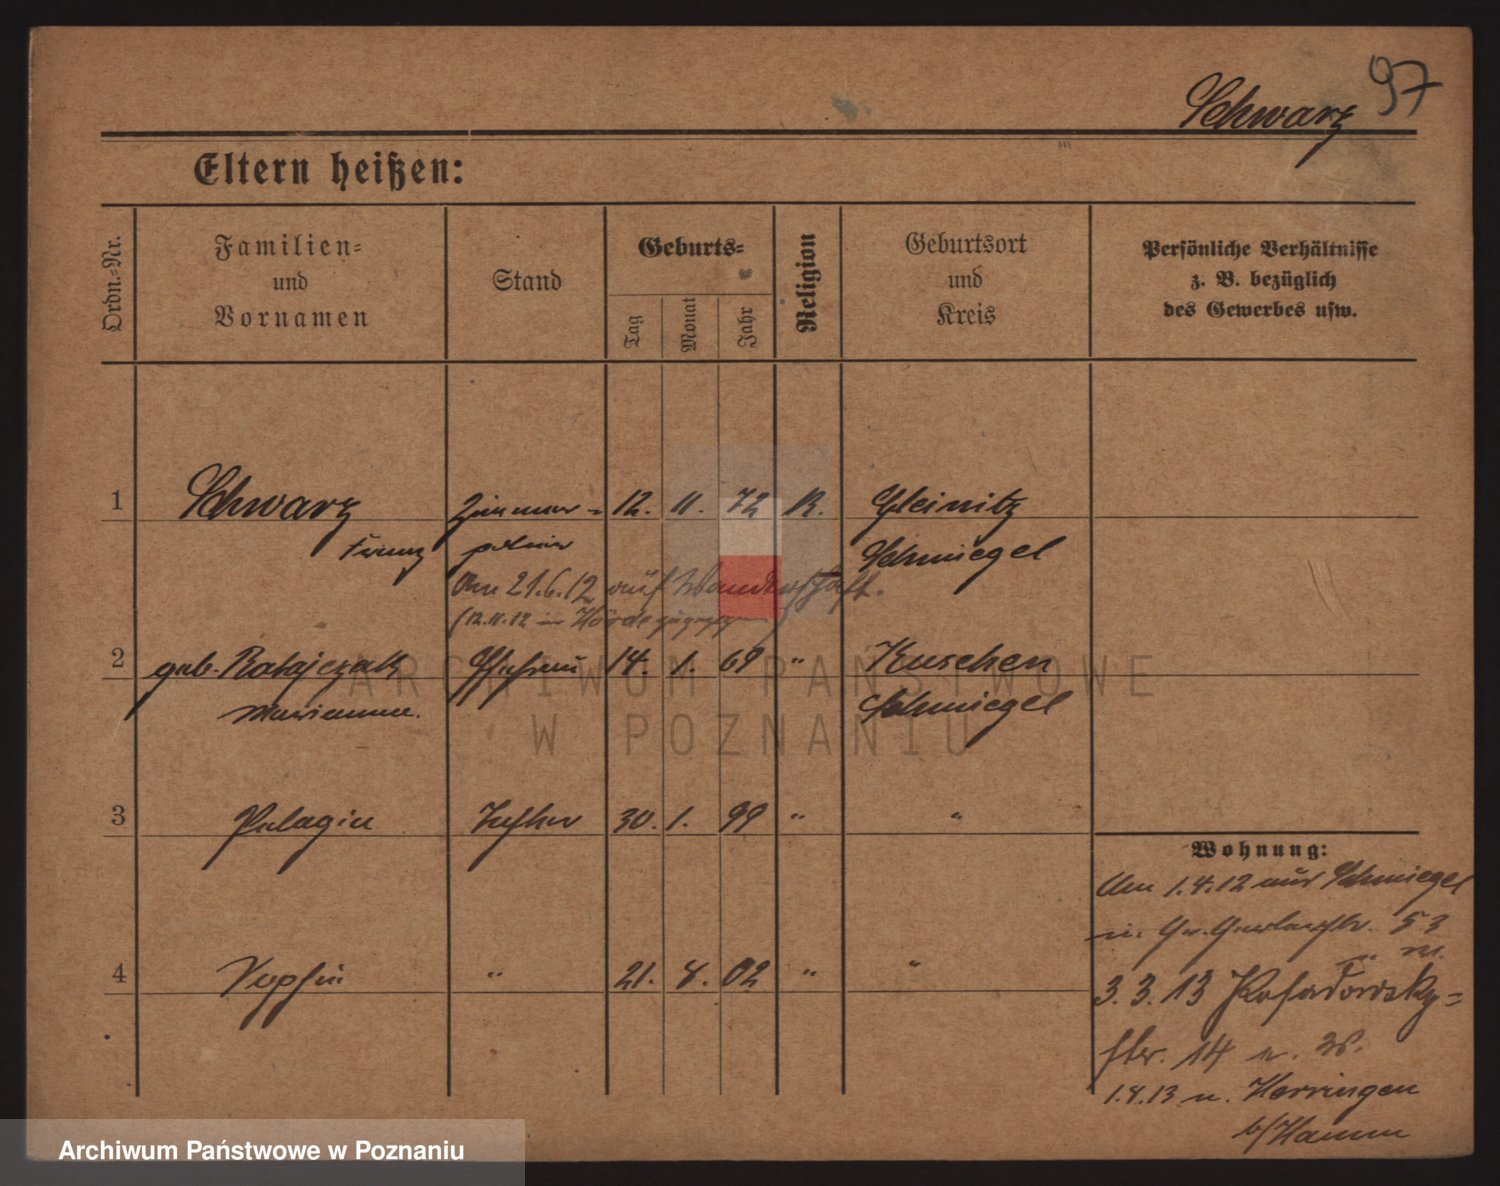 Schwarz 97
Eltern heißen:
Ordn.-Nr.
Familien-
und
Vornamen
Stand
Geburts-
Tag
Monat
Jahr
Religion
Geburtsort
und
Kreis
Persönliche Verhältnisse
z. B. bezüglich
des Gewerbes usw.
1 Schwarz Zimmer- 12. 11. 72 K. Gleinitz
Franz polier Schmiegel
Am 21.6.12 auf Wanderschaft.
(12.11.12 in Hörde zugezogen)
2 geb. Ratajczak Ehefrau 14. 1. 69 " Kuschen
Marianna. Schmiegel
3 Pelagia Tochter 30. 1. 99 " "
4 Sophia " 21. 4. 02 " "
Wohnung:
Am 1.4.12 aus Schmiegel
n. Gr. 53
3.3.13 Posadowsky-
str. 14 n. W.
1.4.13 n. Herringen
b/Hamm
ARCHIWUM PAŃSTWOWE
W POZNANIU
Archiwum Państwowe w Poznaniu